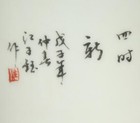 四时
新
戊子年
仲春
江子
作